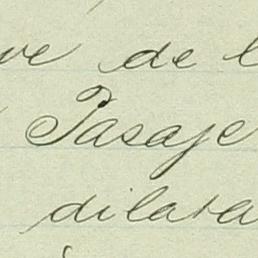 ve de l
Pasaje
dilata